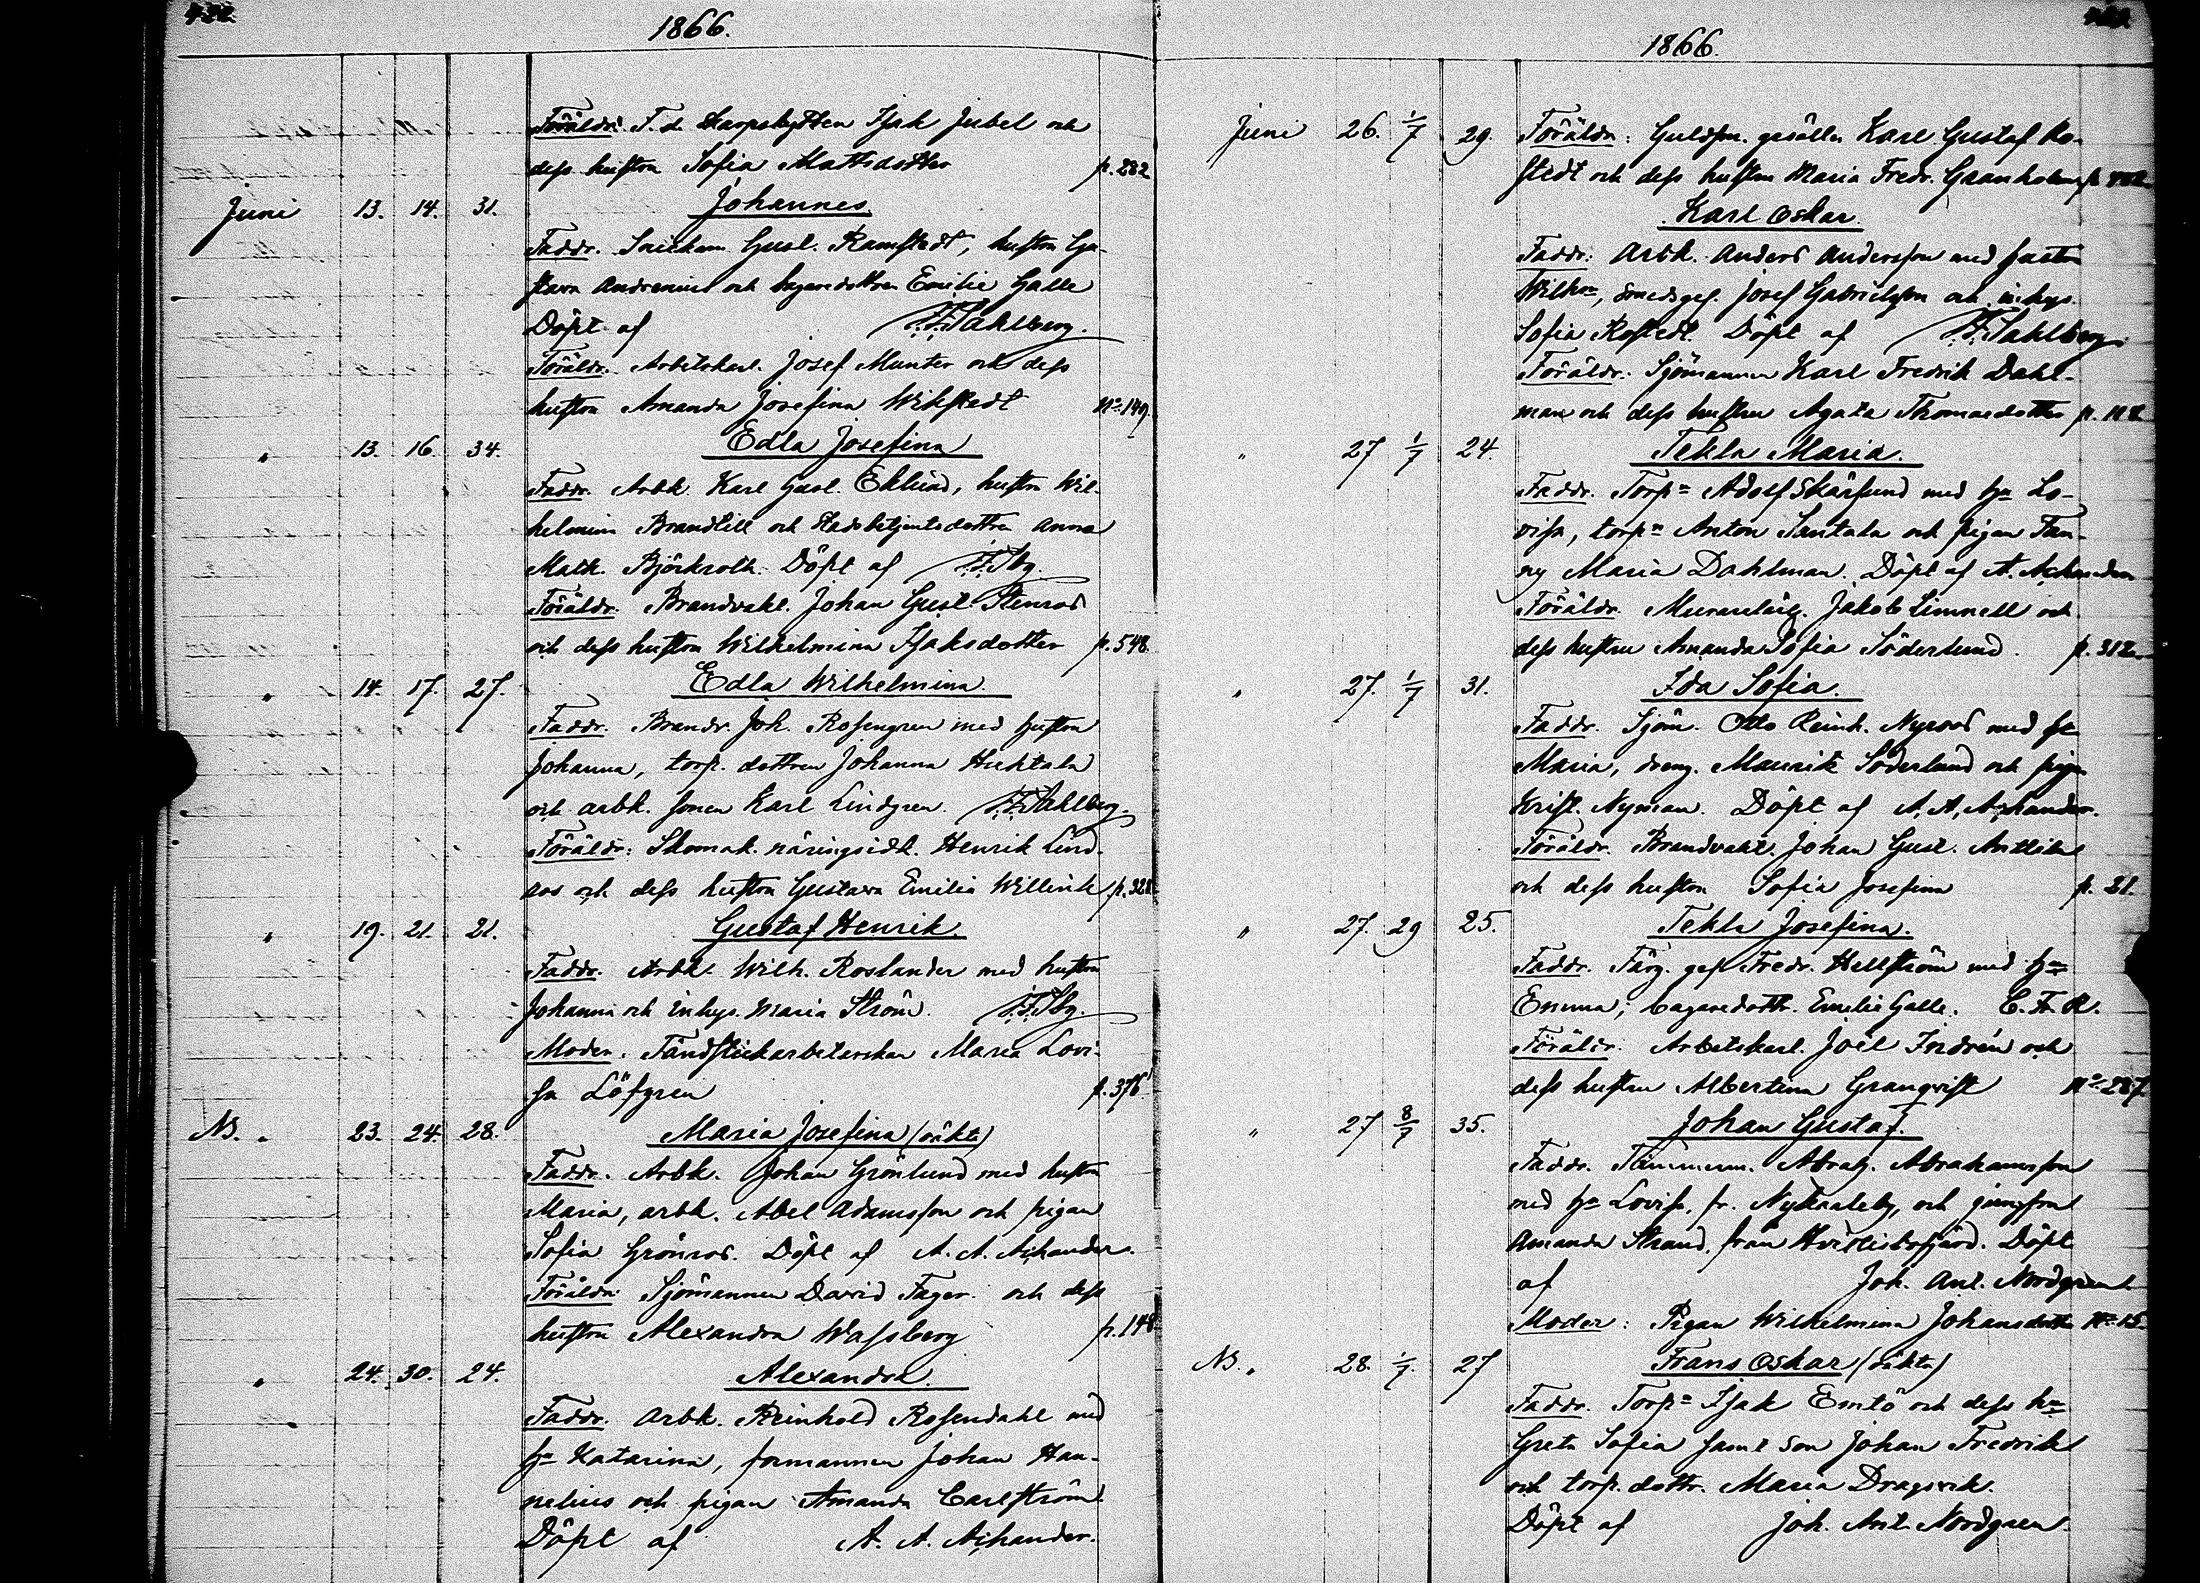 1866.
Föräldr. F. d. Skarpskytten Isak Jubel och
dess hustru Sofia Mattsdotter p. 282
Juni 13. 14. 31. Johannes.
Faddr. Snickarn Gust. Ramstedt, hustru Gu-
stava Andrenius och bagaredottren Emilie Galle
Döpt af F. F. Sahlberg.
Föräldr. Arbetskarl. Josef Munter och dess
hustru Amanda Josefina Wikstedt No 149.
" 13. 16. 34. Edla Josefina
Faddr. Arbk. Karl Gust. Eklund, hustru Wil-
helmina Brandtill och stadsbetjentsdottren Anna
Math. Björkroth. Döpt af F. F. Sbg.
Föräldr. Brandvakt. Johan Gust. Stenros
och dess hustru Wilhelmina Isaksdotter p. 548.
" 14. 17. 27. Edla Wilhelmina.
Faddr. Brandv. Joh. Rosengren med hustru
Johanna, torp. dottren Johanna Huhtala
och arbk. sonen Karl Lindgren. F. F. Sahlberg.
Föräldr: Skomak. näringsidk. Henrik Lind-
ros och dess hustru Gustava Emilia Willink p. 328
" 19. 21. 21. Gustaf Henrik.
Faddr. Arbk. Wilh. Roslander med hustru
Johanna och inhys. Maria Ström. F. F. Sbg.
Moder. Tändstickarbeterskan Maria Lovi-
sa Löfgren p. 376
NB. " 23. 24. 28. Maria Josefina (oäkta)
Faddr. Arbk. Johan Grönlund med hustru
Maria, arbk. Abel Adamsson och pigan
Sofia Grönroos. Döpt af A. A. Aschander.
Föräldr. Sjömannen David Fager och dess
hustru Alexandra Wassberg p. 148
" 24. 30. 24. Alexandra.
Faddr. Arbk. Reinhold Rosendahl med
hu Katarina, formannen Johan Han-
nelius och pigan Amanda Carlström.
Döpt af A. A. Aschander.
1866.
Juni 26. 1/7 29. Föräldr: Guldsm. gesällen Karl Gustaf Ro-
stedt och dess hustru Maria Fredr. Granholm p.
Karl Oskar.
Faddr: Arbk. Anders Andersson med hustru
Wilhna, smedsges. Josef Gabrielsson och inhys.
Sofia Rostedt. Döpt af F. F. Sahlberg
Föräldr. Sjömannen Karl Fredrik Dahl-
man och dess hustru Agata Thomasdotter p. 112
" 27 1/7 24. Tekla Maria.
Faddr. Torpn Adolf Skärsund med hu Lo-
visa, torpn Anton Santala och pigan Fan-
ny Maria Dahlman. Döpt af A. Aschander
Föräldr. Murarelärg. Jakob Limnell och
dess hustru Amanda Sofia Söderlund. p. 312
" 27. 1/7 31. Ida Sofia.
Faddr. Sjöm. Otto Reinh. Nyroos med hu
Maria, dreng. Maurits Söderlund och pigan
Krist. Nyman. Döpt af A. A. Aschander.
Föräldr. Brandvakt. Johan Gust. Antlin
och dess hustru Sofia Josefina p. 21.
" 27. 29 25. Tekla Josefina.
Faddr. Färg. ges. Fredr. Hellström med hu
Emma, bagaredottr. Emilie Galle. C. F. R.
Föräldr. Arbetskarl. Joel Indrén och
dess hustru Albertina Granqvist No 287.
" 27 8/7 35. Johan Gustaf.
Faddr. Timmerm. Abrah. Abrahamsson
med hu Lovisa, fr. Nykarleby, och jungfrun
Amanda Strand, från Hvittisbofjärd. Döpt
af Joh. Ant. Nordgren.
Moder: Pigan Wilhelmina Johansdotter No 15.
NB. " 28. 1/7. 27 Frans Oskar (oäkta)
Faddr. Torpn Isak Emtö och dess hu
Greta Sofia samt son Johan Fredrik
och torp. dottr. Maria Dragsvik.
Döpt af Joh. Ant. Nordgren.